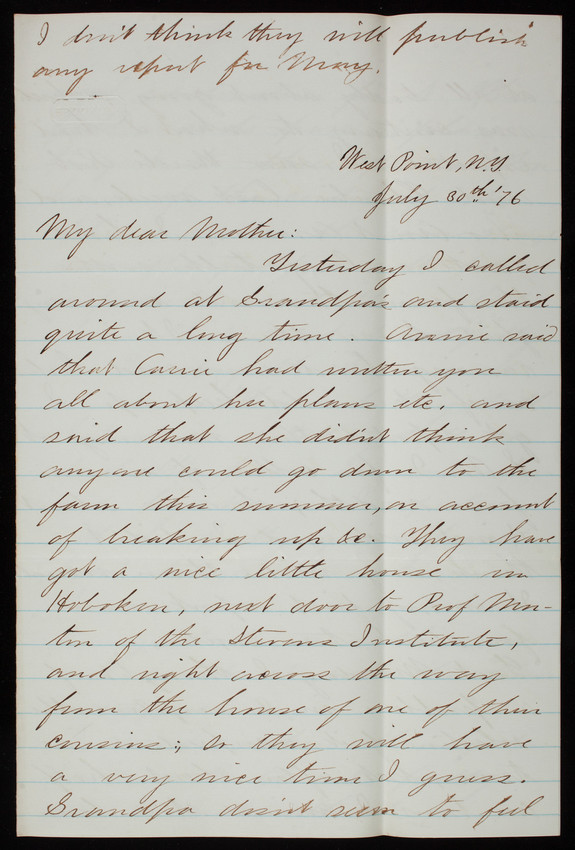 I don't think they will publish
any report for May.
West Point, N.Y.
July 30th '76
My dear Mother:
Yesterday I called
around at Grandpa's and staid
quite a long time. Annie said
that Carrie had written you
all about her plans etc. and
said that she didn't think
anyone could go down to the
farm this summer, on account
of breaking up &c. They have
got a nice little house in
Hoboken, next door to Prof Mor-
ton of the Stevens Institute,
and right across the way
from the house of one of their
cousins; so they will have
a very nice time I guess.
Grandpa doesn't seem to feel